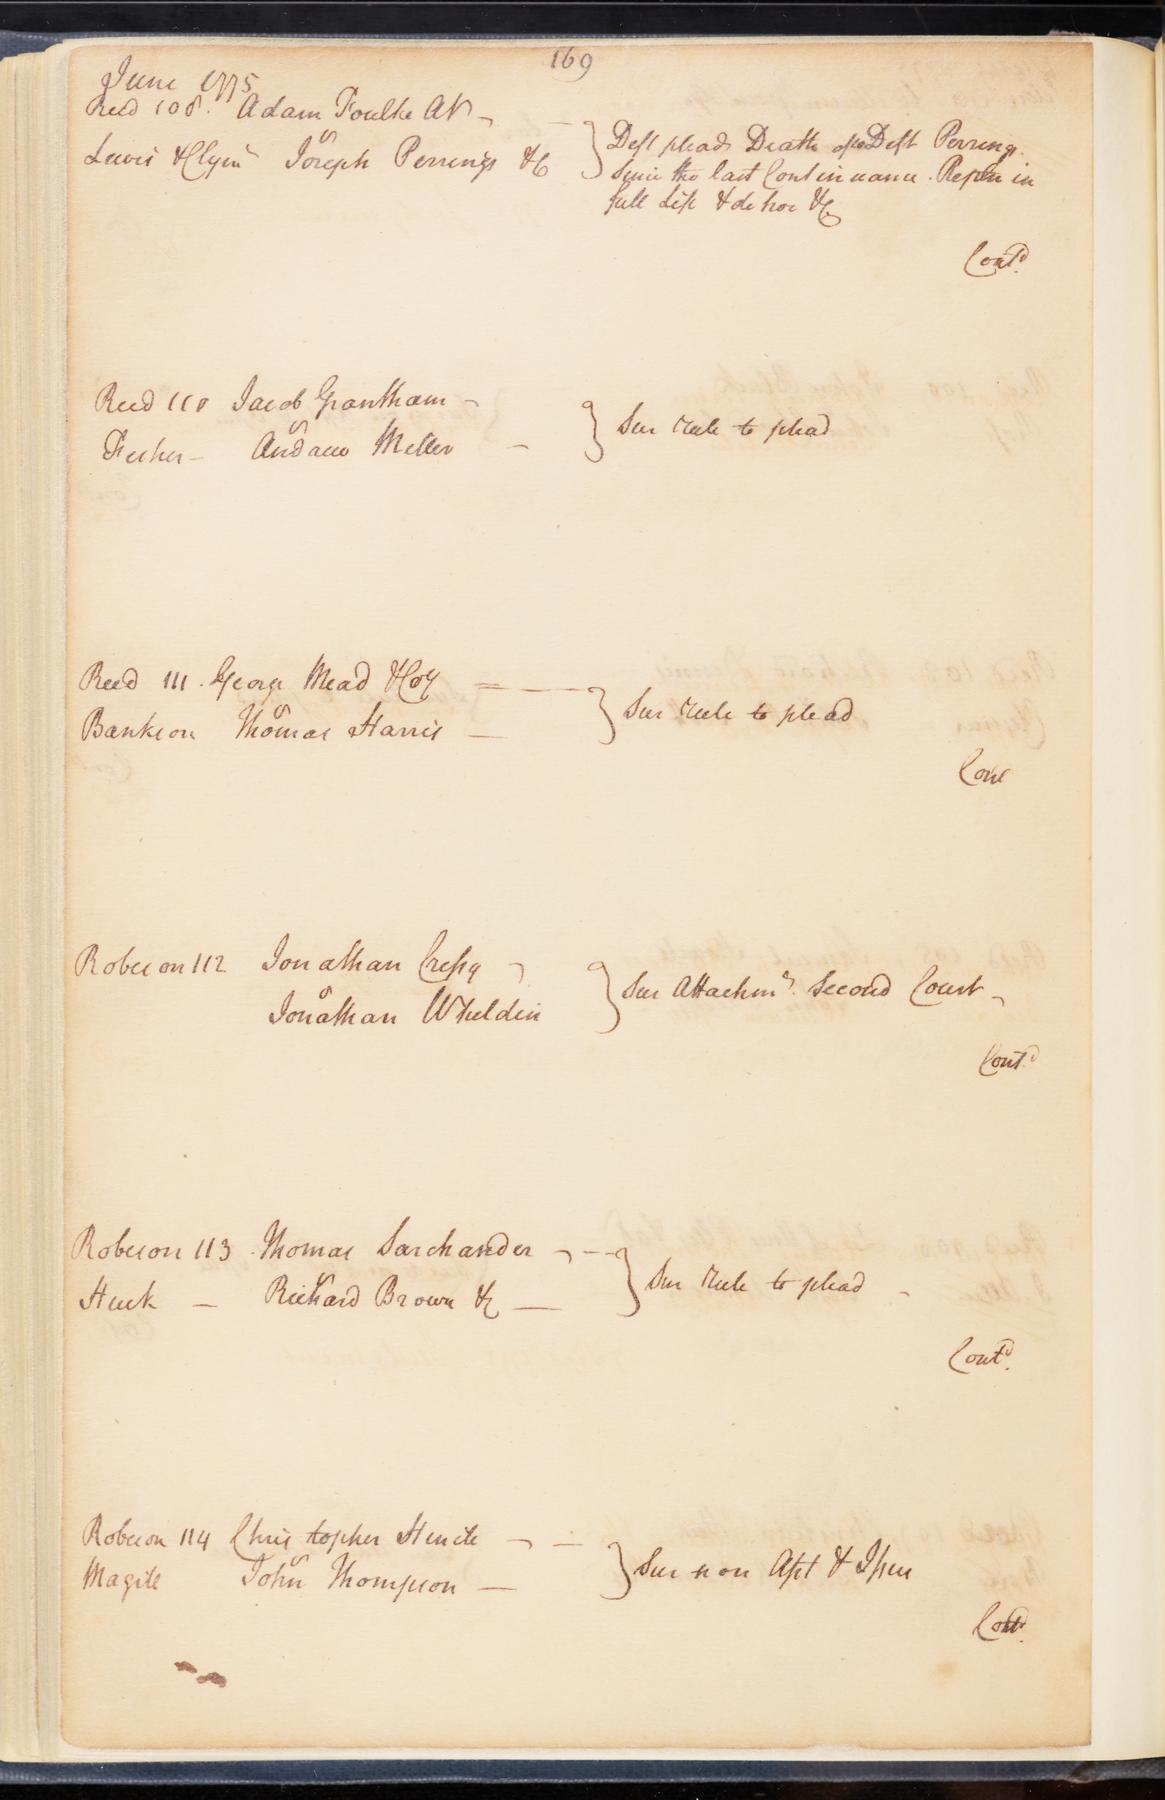 169
June 1775
Reed 108. Adam Foulke Ar
Lewis & Clymr vs Joseph Perrings &c
Deft pleads Death of ye Deft Perring.
Since the last Continuance. Repon in
full Life & de hoc &c
Contd.
Reed 110 Jacob Grantham
Fisher vs Andrew Miller
Sur rule to plead
Reed 111. George Mead & Coy
Bankson vs Thomas Harris
Sur rule to plead
Cont
Robeson 112 Jonathan Cressy
vs
Jonathan Whildin
Sur Attachmt. Second Court
Contd
Robeson 113 Thomas Sarchander
Huck vs Richard Brown &c
Sur rule to plead
Contd.
Robeson 114 Christopher
Magile vs John Thompson
Sur non Asst & Issue
Contd.